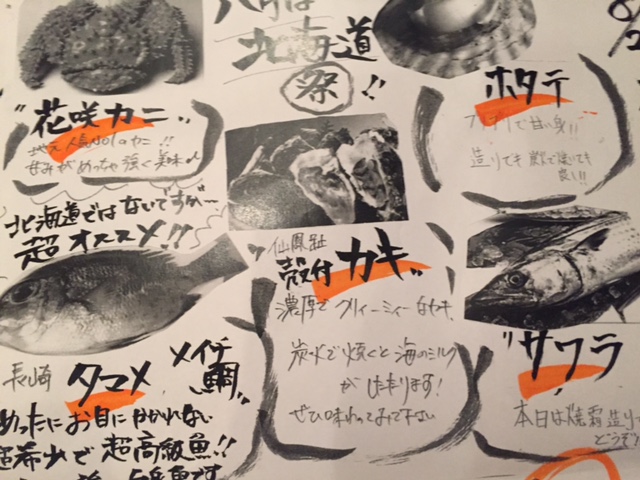 8月は
北海道
祭!!
"花咲カニ"
地元人気NO1のカニ!!
甘みがめっちゃ強く美味い
ホタテ
プリプリで甘い身!!
造りでも炭火で焼いても
良し!!
北海道ではないですが〜
超オススメ!!
仙鳳趾
殻付カキ"
濃厚でクリィーミィーなカキ
炭火で焼くと海のミルク
がたまります!
ぜひ味わってみて下さい
長崎 タマメ メイチ鯛
めったにお目にかかれない
超希少で超高級魚!!
魚です
"サワラ"
本日は焼霜造りで
どうぞ!